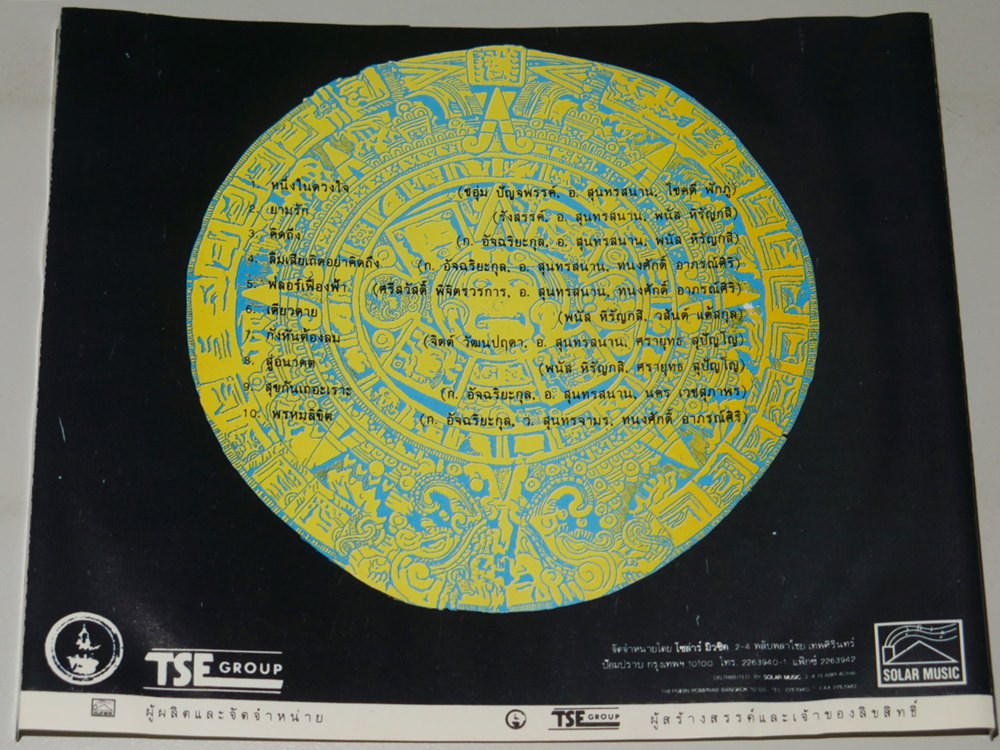 1. หนึ่งในดวงใจ (ชอุ่ม ปัญจพรรค์, อ. สุนทรสนาน, โชคดี พักภู่)
2. ยามรัก (รังสรรค์, อ. สุนทรสนาน, พนัส หิรัญกสิ)
3. คิดถึง (ก. อัจฉริยะกุล, อ. สุนทรสนาน, พนัส หิรัญกสิ)
4. ลืมเสียเถิดอย่าคิดถึง (ก. อัจฉริยะกุล, อ. สุนทรสนาน, ทนงศักดิ์ อาภรณ์ศิริ)
5. ฟลอร์เฟื่องฟ้า (ศรีสวัสดิ์ พิจิตรวรการ, อ. สุนทรสนาน, ทนงศักดิ์ อาภรณ์ศิริ)
6. เดียวดาย (พนัส หิรัญกสิ, วสันต์ แต้สกุล)
7. กังหันต้องลม (จิตต์ วัฒนปฤดา, อ. สุนทรสนาน, ศรายุทธ สุปัญโญ)
8. สู่อนาคต (พนัส หิรัญกสิ, ศรายุทธ สุปัญโญ)
9. สุขกันเถอะเราะ (ก. อัจฉริยะกุล, อ. สุนทรสนาน, นคร เวชสุภาพร)
10. พรหมลิขิต (ก. อัจฉริยะกุล, ว. สุนทรจามร, ทนงศักดิ์ อาภรณ์ศิริ)
จัดจำหน่ายโดย โซล่าร์ มิวซิค 2-4 พลับพลาไชย เทพศิรินทร์
ป้อมปราบ กรุงเทพฯ 10100 โทร. 2263940-1 แฟ็กซ์ 2263942
DISTRIBUTED BY SOLAR MUSIC 2-4 PLABPLACHAI
BANGKOK FAX 2263942
TSE GROUP
SOLAR MUSIC
ผู้ผลิตและจัดจำหน่าย
TSE GROUP ผู้สร้างสรรค์และเจ้าของลิขสิทธิ์